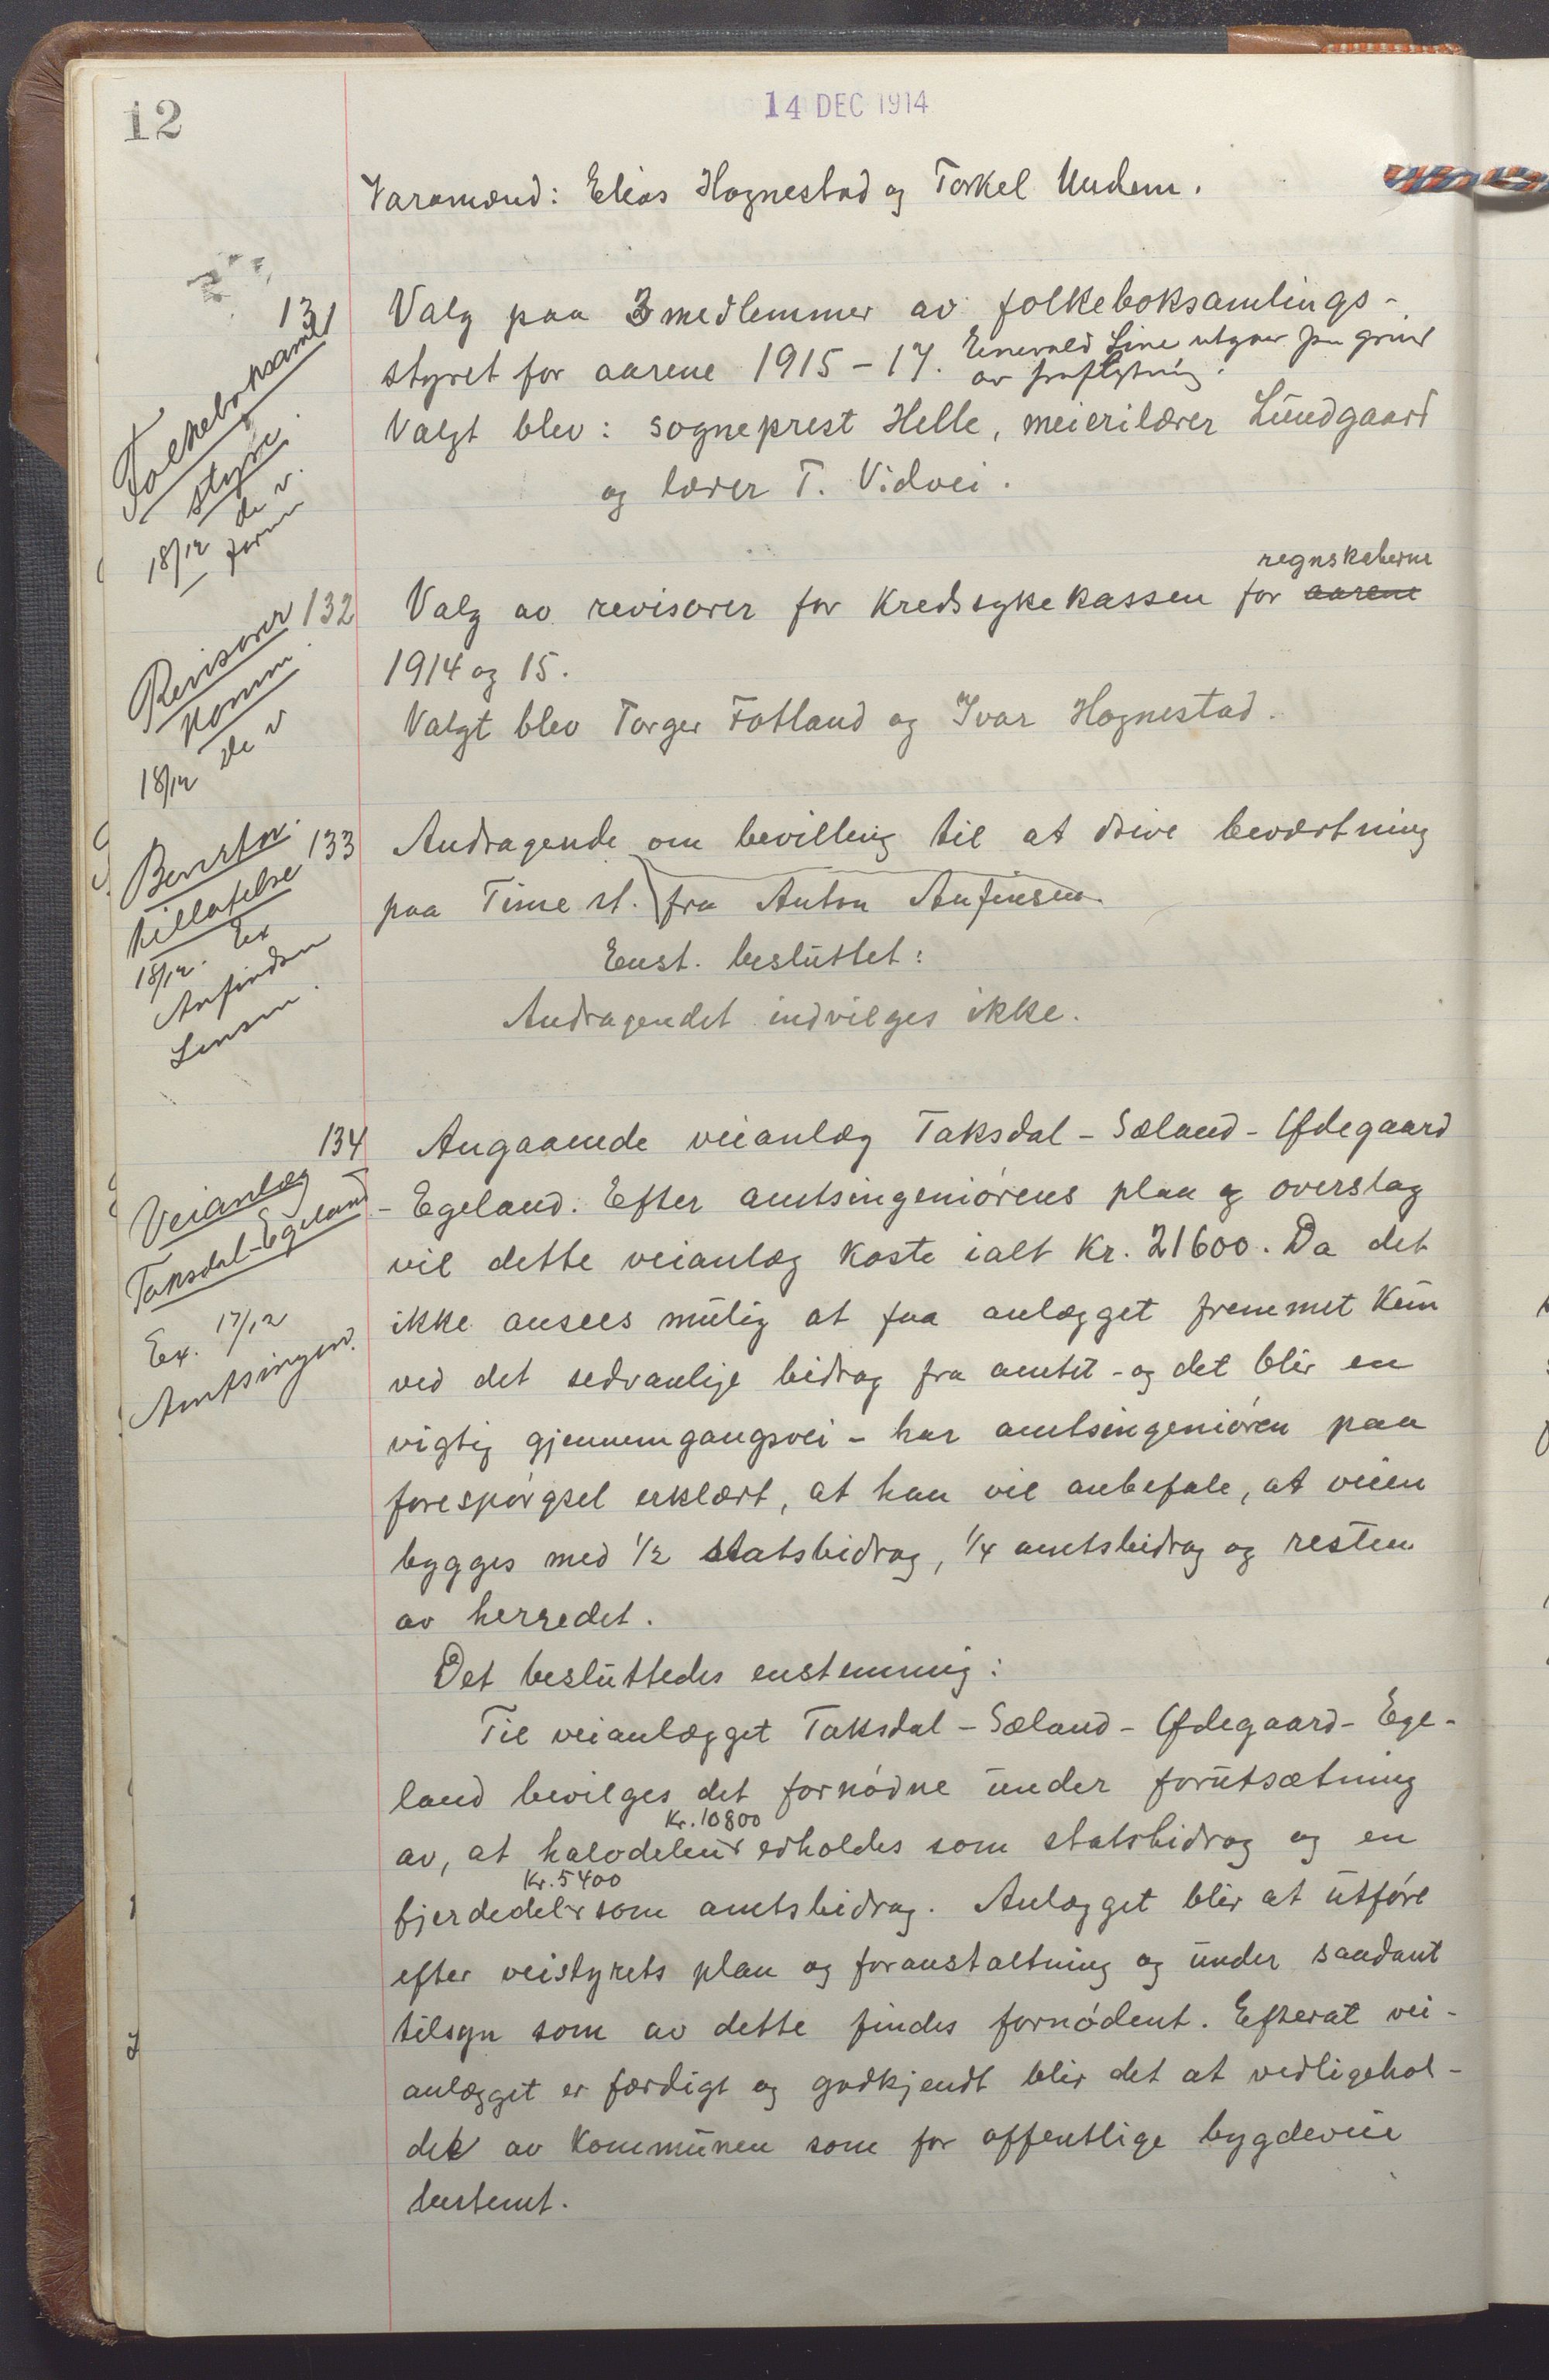 12
14 DEC 1914
Varamænd: Elias Hognestad og Torkel Undem.
131
Folkeboksaml
styre.
18/12 de v.
form
Valg paa 3 medlemmer av folkeboksamlings-
styret for aarene 1915-17. Enevald Line utgaar paa grund
av fraflytning.
Valgt blev: sogneprest Helle, meierilærer Lundgaard
og lærer T. Vidvei.
132
Revisorer
komm.
18/12 de v
regnskaberne
Valg av revisorer for kredssykekassen for aarene
1914 og 15.
Valgt blev Torger Fotland og Ivar Hognestad.
133
Bevertn.
tillatelse
18/12. Ex
Anfindsen
Lensm.
Andragende om bevilling til at drive beværtning
paa Time st. fra Anton Anfinsen.
Enst. besluttet:
Andragendet indvilges ikke.
134
Veianlæg
Taksdal-Egeland
Ex. 17/12
Amtsingen.
Angaaende veianlæg Taksdal - Sæland - Ødegaard
- Egeland. Efter amtsingeniørens plan og overslag
vil dette veianlæg koste ialt Kr. 21600. Da det
ikke ansees mulig at faa anlægget fremmet kun
ved det sedvanlige bidrag fra amtet - og det blir en
vigtig gjennemgangsvei - har amtsingeniøren paa
forespørgsel erklært, at han vil anbefale, at veien
bygges med 1/2 statsbidrag, 1/4 amtsbidrag og resten
av herredet.
Det besluttedes enstemmig:
Til veianlægget Taksdal - Sæland - Ødegaard - Ege-
land bevilges det fornødne under forutsætning
Kr. 10800
av, at halvdelen erholdes som statsbidrag og en
Kr. 5400
fjerdedel som amtsbidrag. Anlægget blir at utføre
efter veistyrets plan og foranstaltning og under saadant
tilsyn som av dette findes fornødent. Efterat vei-
anlægget er færdigt og godkjendt blir det at vedligehol-
de av kommunen som for offentlige bygdeveie
bestemt.